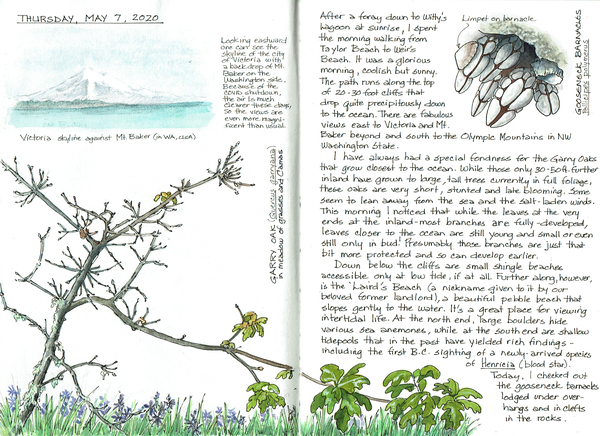 THURSDAY, MAY 7, 2020
Looking eastward
one can see the
skyline of the city
of Victoria with
a backdrop of Mt.
Baker on the
Washington side.
Because of the
COVID shutdown,
the air is much
clearer these days,
so the views are
even more magni-
ficent than usual.
Victoria skyline against Mt. Baker (in WA, USA)
GARRY OAK (Quercus garryana)
in meadow of grasses and Camas
After a foray down to Witty's
Lagoon at sunrise, I spent
the morning walking from
Taylor Beach to Weir's
Beach. It was a glorious
morning, coolish but sunny.
The path runs along the top
of 20-30 foot cliffs that
drop quite precipitously down
to the ocean. There are fabulous
views east to Victoria and Mt.
Baker beyond and south to the Olympic Mountains in NW
Washington State.
I have always had a special fondness for the Garry Oaks
that grow closest to the ocean. While those only 30-50ft. further
inland have grown to large, tall trees currently in full foliage,
these oaks are very short, stunted and late blooming. Some
seem to lean away from the sea and the salt-laden winds.
This morning I noticed that while the leaves at the very
ends at the inland-most branches are fully-developed,
leaves closer to the ocean are still young and small or even
still only in bud! Presumably those branches are just that
bit more protected and so can develop earlier.
Down below the cliffs are small shingle beaches
accessible only at low tide, if at all. Further along, however,
is the "Laird's Beach (a nickname given to it by our
beloved former landlord), a beautiful pebble beach that
slopes gently to the water. It's a great place for viewing
intertidal life. At the north end, large boulders hide
various sea anemones, while at the south end are shallow
tidepools that in the past have yielded rich findings -
including the first B.C. sighting of a newly-arrived species
of Henricia (blood star).
Today, I checked out
the gooseneck barnacles
lodged under over-
hangs and in clefts
in the rocks.
Limpet on barnacle
GOOSENECK BARNACLES
Pollicipes polymerus